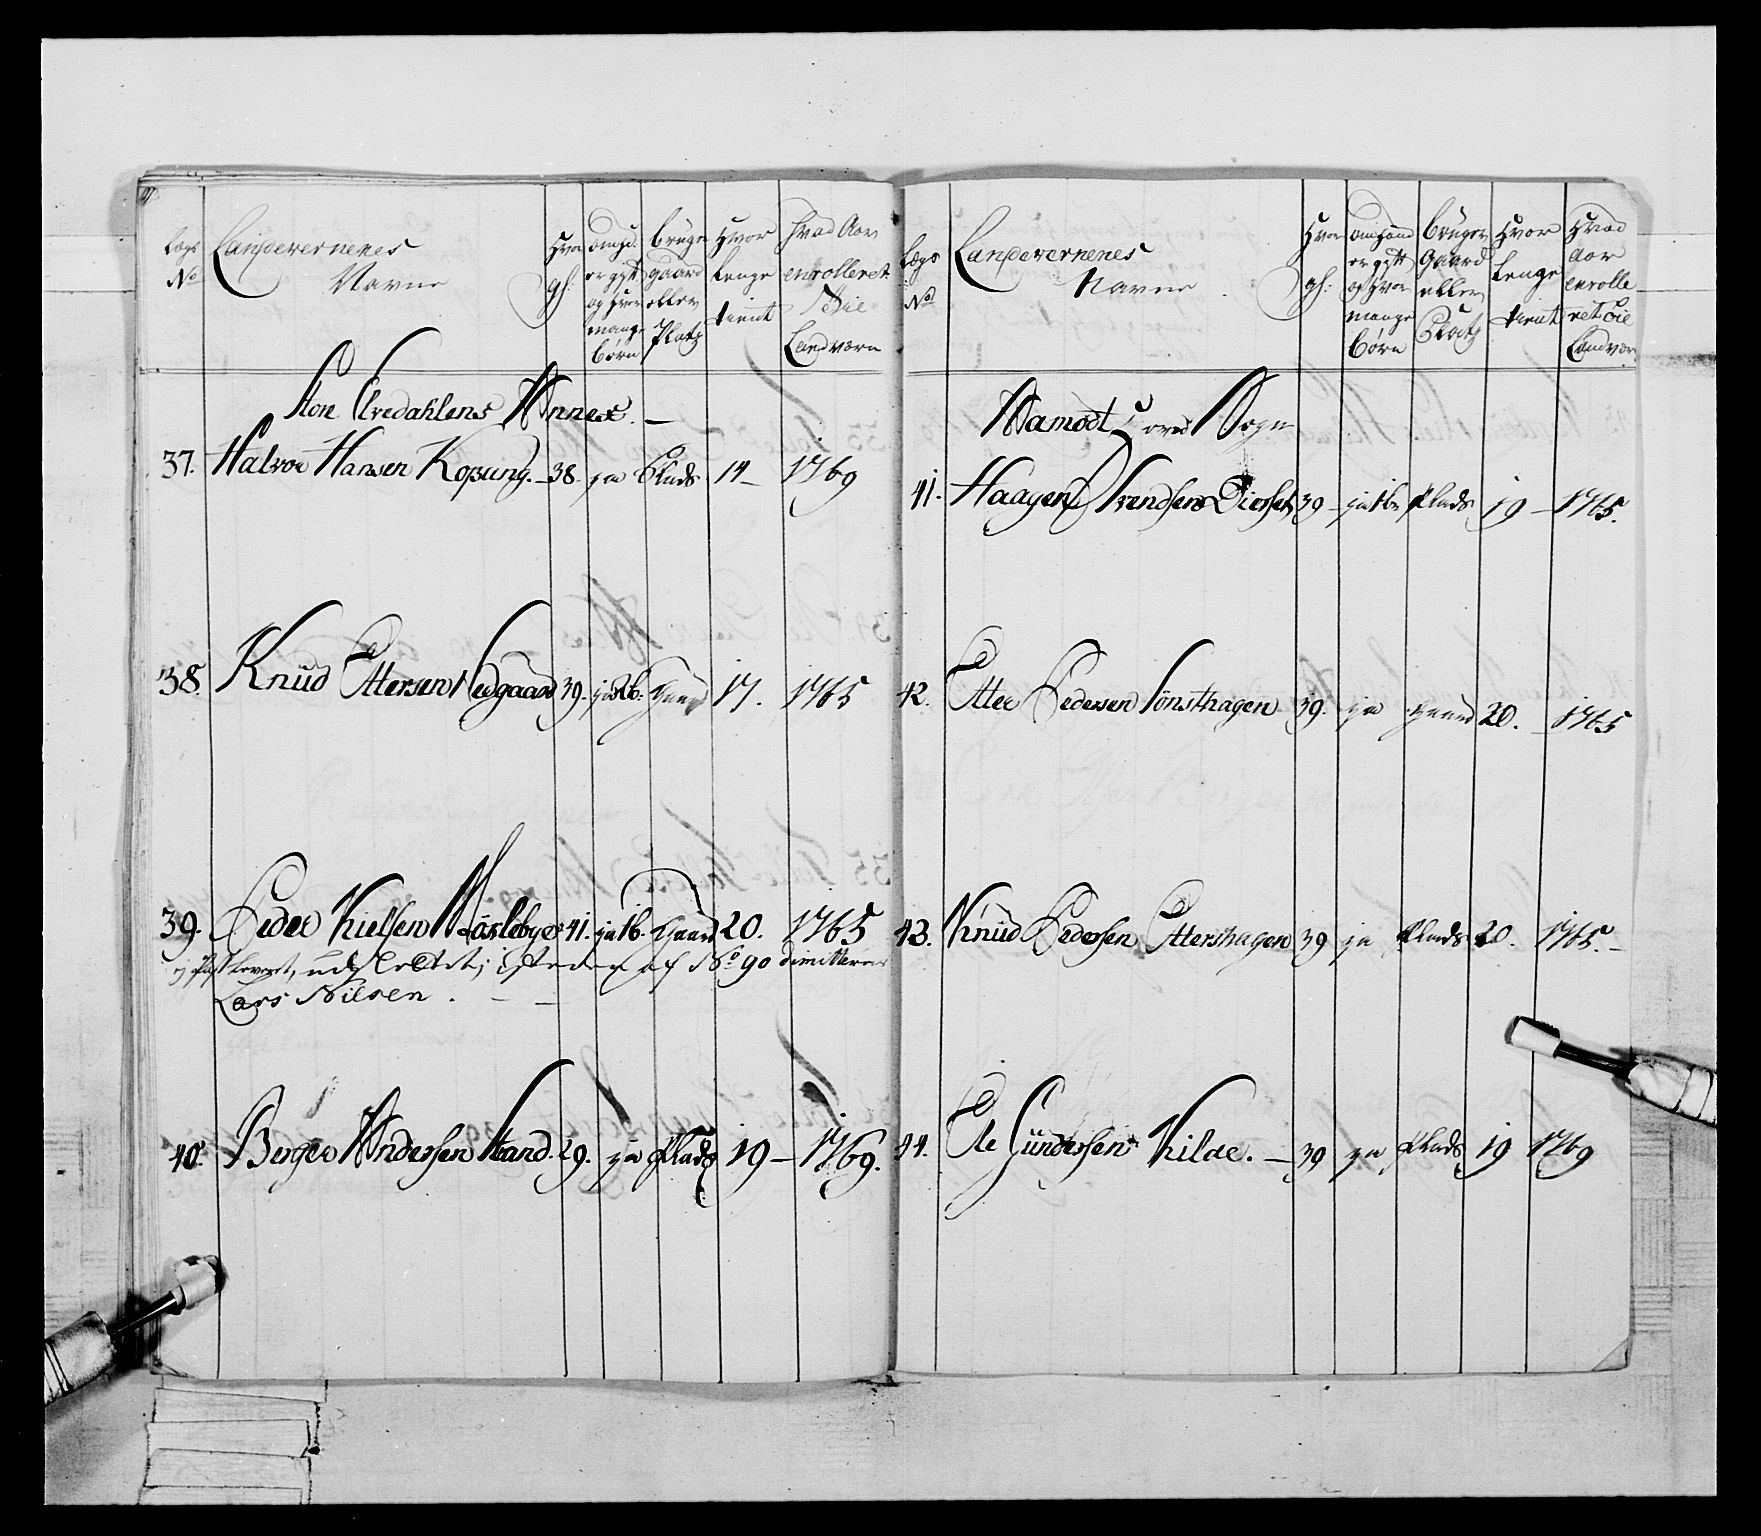 Lægs No
Landevernenes Navne
Hvor gl:
om hand er gift og hvor mange børn
bruger gaard eller Platz
Hvor lenge tient
Hvad Aar enrolleret Landværn
Store Elvedahlens Annex. —
37. Halvor Hansen Kopang. — 38 ja Plads 14 — 1769
38. Knud Ottersen Nedgaard 39. ja 2b. Gaard 17. 1765
39. Peder Kielsen Westebye 41. ja 1b. Gaard 20. 1765
udslettet; isteden af No 90
Lars Nilsen. — —
40. Berger Andersen Strand. 29. ja Plads 19 — 1769.
Lægs No
Landevernenes Navne
Hvor gl:
om hand er gift og hvor mange børn
bruger Gaard eller Platz
Hvor lenge tient
Hvad Aar enrolleret Landvær
Aamodt Hoved Sogn
41. Haagen Svendsen Dieset 39 — ja 1b Plads 19 — 1765.
42. Otter Pedersen Lönsthagen 39. ja gaard 20. — 1765
43. Knud Pedersen Ottershagen 39 ja Plads 20. 1765. —
44. Ole Gundersen Kilde. — 39 ja Plads 19 1769